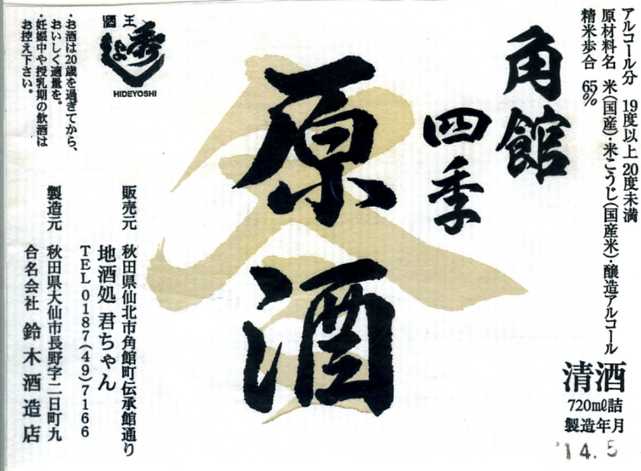 アルコール分 19度以上20度未満
原材料名 米(国産)・米こうじ(国産米)・醸造アルコール
精米歩合 65%
清酒
720ml詰
製造年月
'14.5
角館
四季
原酒
國王
秀よし
HIDEYOSHI
・お酒は20歳を過ぎてから、
おいしく適量を。
・妊娠中や授乳期の飲酒は
お控え下さい。
販売元 秋田県仙北市角館町伝承館通り
地酒処 君ちゃん
TEL 0187(49)7166
製造元 秋田県大仙市長野字二日町九
合名会社 鈴木酒造店